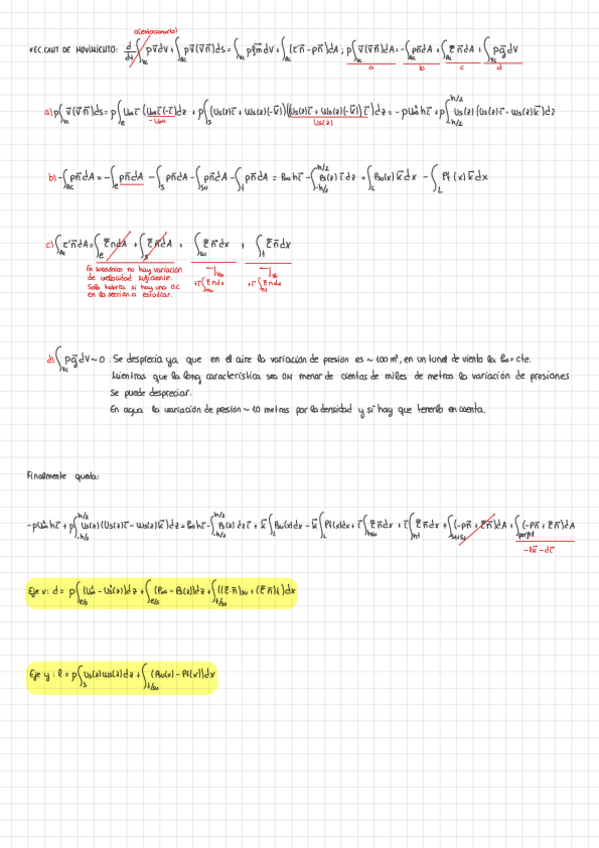 0(estacionario)
VEC.CANT DE MOVIMIENTO: d/dt ∫_VC ρv̄dV + ∫_VC ρv̄(v̄·n̄)dS = ∫_VC ρf̄m dV + ∫_VC (τ'n̄ - pn̄)dA ; ρ∫_VC v̄(v̄n̄)dA = -∫_VC pn̄dA + ∫_VC τ̄n̄dA + ∫_VC ρḡdV
a b c d
a) ρ∫_VC v̄(v̄·n̄)dS = ρ∫_e U∞ī (U∞ī(-ī))dz + ρ∫_s (Us(z)ī + ws(z)(-k̄))((Us(z)ī + ws(z)(-k̄))ī)dz = -ρU∞²hī + ρ∫_h/2^h/2 Us(z)(Us(z)ī - ws(z)k̄)dz
-U∞ Us(z)
b) -∫_AC pn̄dA = -∫_e pn̄dA - ∫_s pn̄dA - ∫_su pn̄dA - ∫_f pn̄dA = P∞hī - ∫_-h/2^h/2 Ps(z) īdz + ∫_L Psu(x)k̄dx - ∫_L Pf(x)k̄dx
c) ∫_VC τ'n̄dA = ∫_e τ̄ndA + ∫_s τ̄n̄dA + ∫_su τ̄n̄dx + ∫_f τ̄n̄dx
En subsónico no hay variación
de velocidad suficiente.
Solo habría si hay una O.C
en la sección a estudiar.
d) ∫_VC ρḡdV ~ 0. Se desprecia ya que en el aire la variación de presión es ~
Mientras que la long característica sea OM menor de cientas de miles de metros la variación de presiones
se puede despreciar.
En agua la variación de presión ~ 10 metros por la densidad y si hay que tenerlo en cuenta.
Finalmente queda:
-ρU∞²hī + ρ∫_-h/2^h/2 Us(z)(Us(z)ī - ws(z)k̄)dz = P∞hī - ∫_-h/2^h/2 Ps(z)dzī + k̄∫_L Psu(x)dx - k̄∫_L Pf(x)dx + ī∫ τ̄n̄dx + ī∫ τ̄n̄dx + ∫ (-pn̄ + τ̄n̄)dA + ∫_perfil (-pn̄ + τ̄n̄)dA
-lk̄ - dī
Eje x: d = ρ∫_e/s (U∞² - Us²(z))dz + ∫_e/s (P∞ - Ps(z))dz + ∫_f/su ((τ̄·n̄)su + (τ̄n̄)f)dx
Eje y: l = ρ∫_s Us(z)ws(z)dz + ∫_f/su (Psu(x) - Pf(x))dx